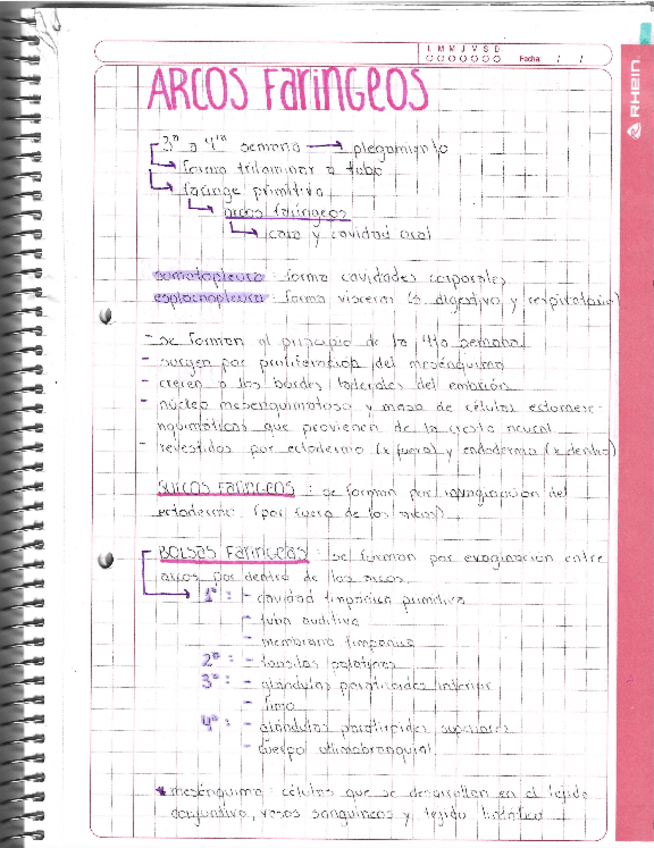 L M M J V S D
Fecha: / /
RHEIN
ARCOS FARINGEOS
3ª a 4ta semana → plegamiento
forma trilaminar a tubo
faringe primitiva
arcos faríngeos
cara y cavidad oral
somatopleura: forma cavidades corporales
esplacnopleura: forma visceras (s. digestivo y respiratorio)
- se forman al principio de la 4ta semana
- surgen por proliferación del mesénquima
- crecen a los bordes laterales del embrión
- núcleo mesenquimatoso y masa de células ectomese-
nquimáticas que provienen de la cresta neural
- revestidos por ectodermo (x fuera) y endodermo (x dentro)
SURCOS FARINGEOS: se forman por invaginación del
ectodermo (por fuera de los arcos)
BOLSAS FARINGEAS: se forman por evaginación entre
arcos por dentro de los arcos.
1ª: - cavidad timpánica primitiva
- tuba auditiva
- membrana timpánica
2ª: - tonsilas palatinas
3ª: - glándulas paratiroides inferior
- timo
4ª: - glándulas paratiroides superiores
- cuerpo ultimobranquial
* mesénquima: células que se desarrollan en el tejido
conjuntivo, vasos sanguíneos y tejido linfático